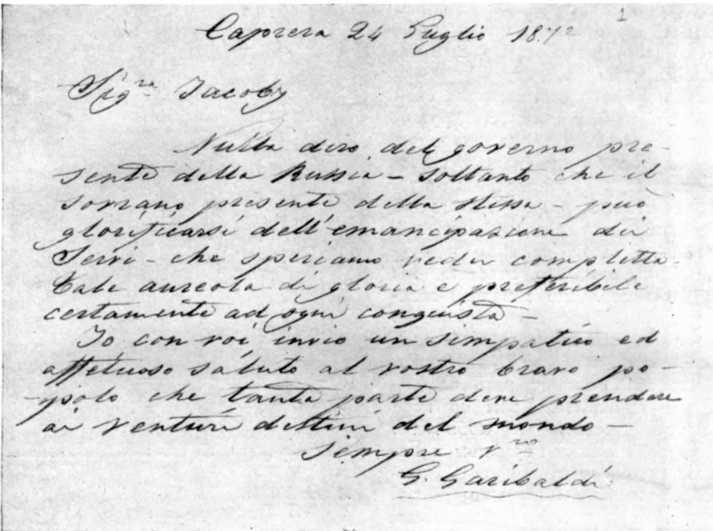 1
Caprera 24 Luglio 187
Sigra Jacoby
Nulla dirò del governo pre-
sente della Russia – soltanto che il
sovrano presente della stessa – può
glorificarsi dell'emancipazione dei
Servi – che speriamo veder completta.
Tale aureola di gloria è preferibile
certamente ad ogni conquista –
Io con voi invio un simpatico ed
affetuoso saluto al vostro bravo po-
-polo che tanta parte deve prendere
ai venturi destini del mondo –
Sempre Vro
G. Garibaldi